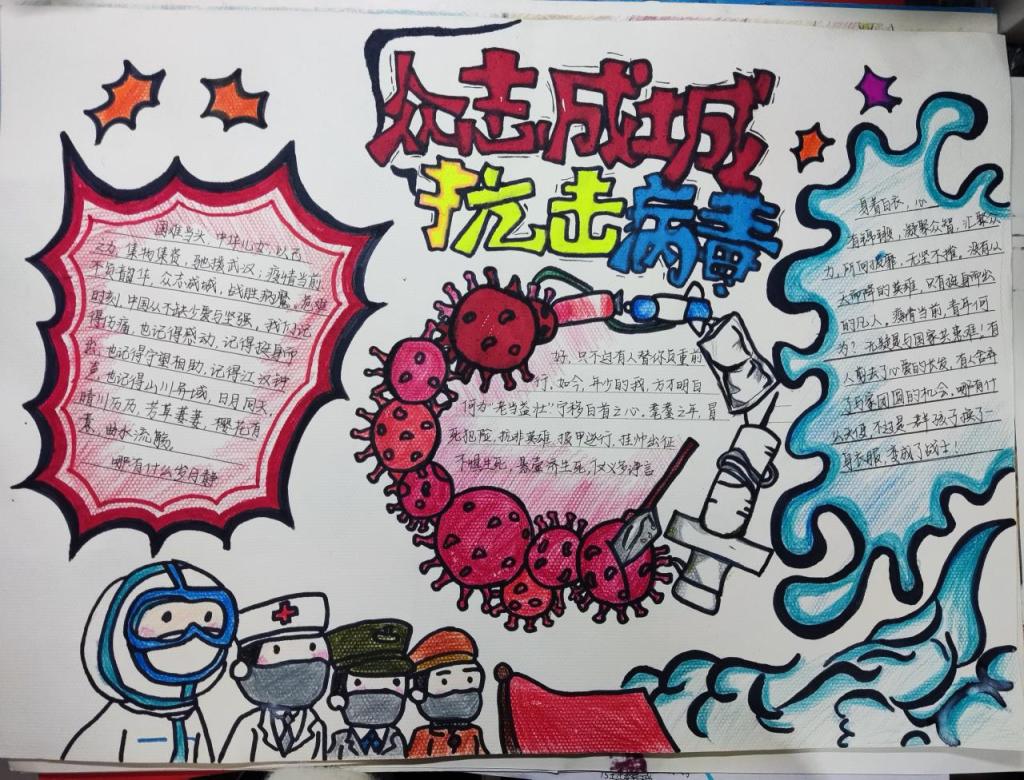 众志成城
抗击病毒
困难当头，中华儿女，以己
之力，集物集资，驰援武汉；疫情当前
不负韶华，众志成城，战胜病魔。危难
时刻，中国从不缺少爱与坚强，我们记
得伤痛，也记得感动，记得挺身而
出，也记得守望相助，记得江汉钟
声，也记得山川异域，日月同天，
晴川历历，芳草萋萋，樱花有
意，曲水流觞。
哪有什么岁月静
好，只不过有人替你负重前
行，如今，年少的我，方才明白
何为“老当益壮”宁移白首之心，耄耋之年，冒
死犯险，抗非英雄，披甲逆行，挂帅出征
不惧生死，悬壶济生死，
身着白衣，心
有，凝聚众智，汇聚众
力，所向披靡，无坚不摧，没有从
天而降的英雄，只有挺身而出
的凡人，疫情当前，青年何
为？无疑是与国家共患难！有
人剪去了心爱的长发，有人舍弃
了与家团圆的机会，哪有什
么天使，不过是一群孩子换了一
身衣服，变成了战士！